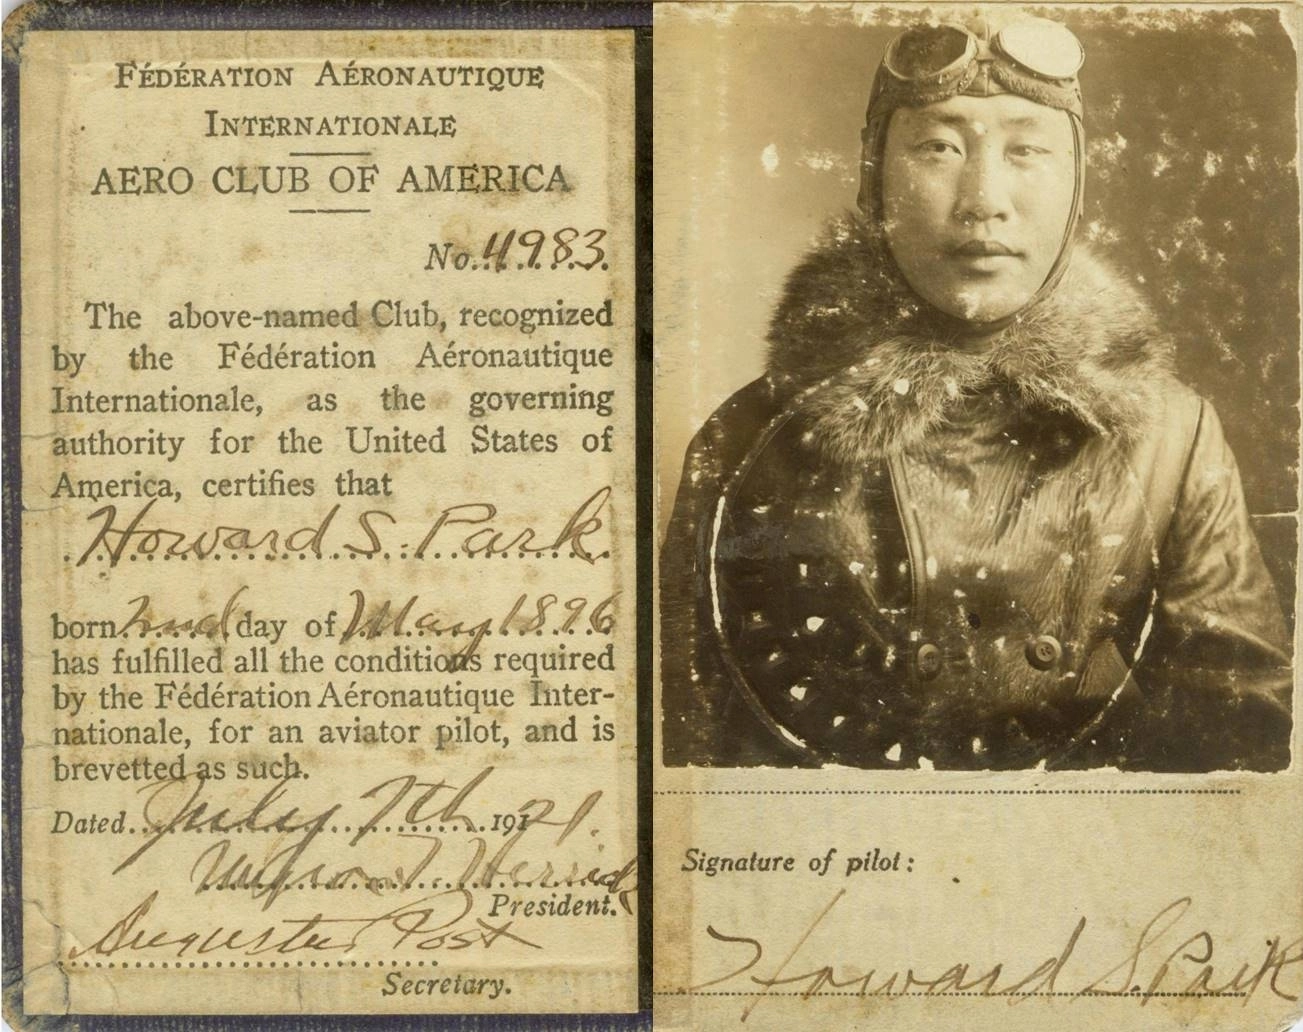 FÉDÉRATION AÉRONAUTIQUE
INTERNATIONALE
AERO CLUB OF AMERICA
No. 4983.
The above-named Club, recognized
by the Fédération Aéronautique
Internationale, as the governing
authority for the United States of
America, certifies that
Howard S. Park.
born 2nd day of May 1896
has fulfilled all the conditions required
by the Fédération Aéronautique Inter-
nationale, for an aviator pilot, and is
brevetted as such.
Dated July 7th 1921.
Myron T. Herrick
President.
Augustus Post
Secretary.
Signature of pilot:
Howard S. Park